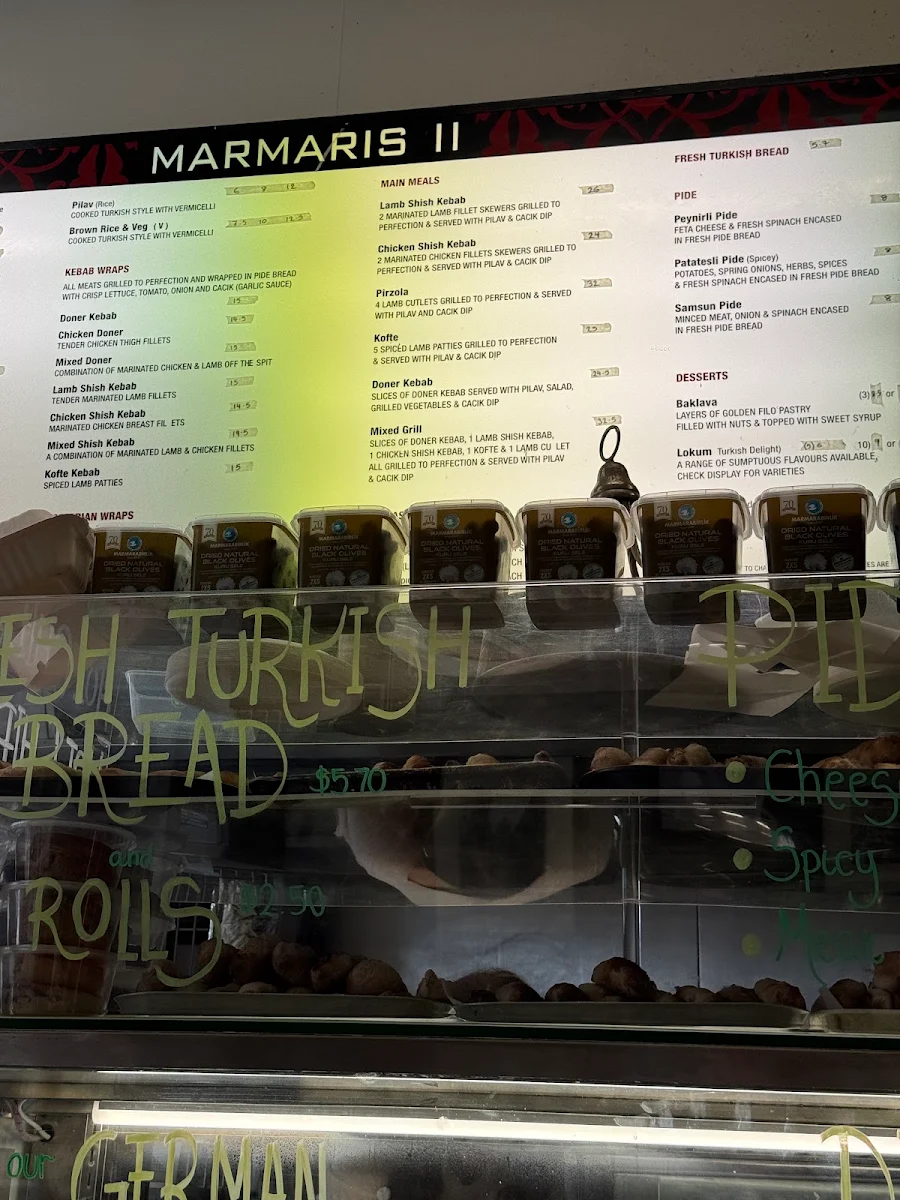 MARMARIS II
Pilav (Rice) 6 8 12
COOKED TURKISH STYLE WITH VERMICELLI
Brown Rice & Veg (V) 7.5 10
COOKED TURKISH STYLE WITH VERMICELLI
KEBAB WRAPS
ALL MEATS GRILLED TO PERFECTION AND WRAPPED IN PIDE BREAD
WITH CRISP LETTUCE, TOMATO, ONION AND CACIK (GARLIC SAUCE)
Doner Kebab 15
Chicken Doner 14.5
TENDER CHICKEN THIGH FILLETS
Mixed Doner 15
COMBINATION OF MARINATED CHICKEN & LAMB OFF THE SPIT
Lamb Shish Kebab 15
TENDER MARINATED LAMB FILLETS
Chicken Shish Kebab 14.5
MARINATED CHICKEN BREAST FIL ETS
Mixed Shish Kebab 14.5
A COMBINATION OF MARINATED LAMB & CHICKEN FILLETS
Kofte Kebab 15
SPICED LAMB PATTIES
RIAN WRAPS
MAIN MEALS
Lamb Shish Kebab 26
2 MARINATED LAMB FILLET SKEWERS GRILLED TO
PERFECTION & SERVED WITH PILAV & CACIK DIP
Chicken Shish Kebab 24
2 MARINATED CHICKEN FILLETS SKEWERS GRILLED TO
PERFECTION & SERVED WITH PILAV & CACIK DIP
Pirzola 32
4 LAMB CUTLETS GRILLED TO PERFECTION & SERVED
WITH PILAV AND CACIK DIP
Kofte 25
5 SPICED LAMB PATTIES GRILLED TO PERFECTION
& SERVED WITH PILAV & CACIK DIP
Doner Kebab 24.5
SLICES OF DONER KEBAB SERVED WITH PILAV, SALAD,
GRILLED VEGETABLES & CACIK DIP
Mixed Grill 32.5
SLICES OF DONER KEBAB, 1 LAMB SHISH KEBAB,
1 CHICKEN SHISH KEBAB, 1 KOFTE & 1 LAMB CU LET
ALL GRILLED TO PERFECTION & SERVED WITH PILAV
& CACIK DIP
FRESH TURKISH BREAD 5.7
PIDE
Peynirli Pide 8
FETA CHEESE & FRESH SPINACH ENCASED
IN FRESH PIDE BREAD
Patatesli Pide (Spicey)
POTATOES, SPRING ONIONS, HERBS, SPICES
& FRESH SPINACH ENCASED IN FRESH PIDE BREAD
Samsun Pide 8
MINCED MEAT, ONION & SPINACH ENCASED
IN FRESH PIDE BREAD
DESSERTS
Baklava (3) or
LAYERS OF GOLDEN FILO PASTRY
FILLED WITH NUTS & TOPPED WITH SWEET SYRUP
Lokum Turkish Delight) 10) or
A RANGE OF SUMPTUOUS FLAVOURS AVAILABLE,
CHECK DISPLAY FOR VARIETIES
MARMARABIRLIK
DRIED NATURAL
BLACK OLIVES
MARMARABIRLIK
DRIED NATURAL
BLACK OLIVES
MARMARABIRLIK
DRIED NATURAL
BLACK OLIVES
MARMARABIRLIK
DRIED NATURAL
BLACK OLIVES
MARMARABIRLIK
DRIED NATURAL
BLACK OLIVES
MARMARABIRLIK
DRIED NATURAL
BLACK OLIVES
MARMARABIRLIK
DRIED NATURAL
BLACK OLIVES
ESH TURKISH
BREAD $5.70
and
ROLLS $2.50
PID
Chees
Spicy
our GERMAN